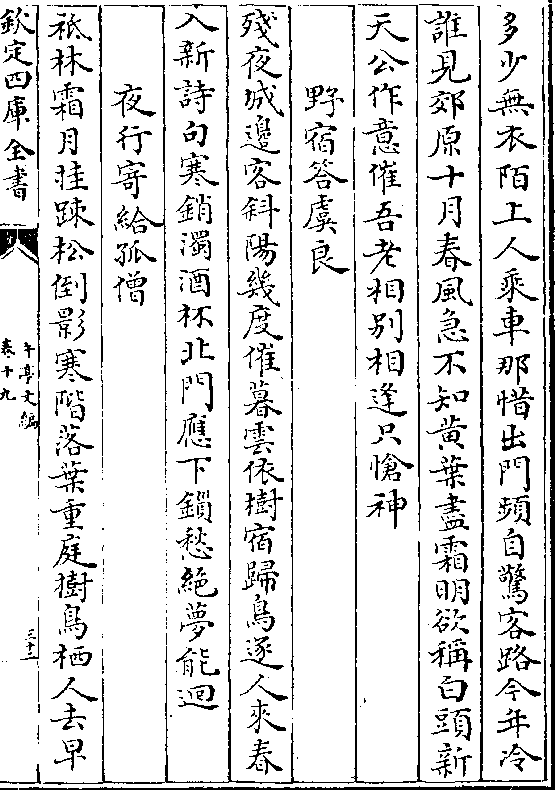 多少無衣陌上人乘車那惜出門頻自驚客路今年冷
誰見郊原十月春風急不知黄葉盡霜明欲稱白頭新
天公作意催吾老相别相逢只愴神
野宿答虞良
殘夜城邊客斜陽幾度催暮雲依樹宿歸鳥逐人來春
入新詩句寒銷濁酒杯北門應下鎖愁絕夢能迴
夜行寄給孤僧
祇林霜月挂踈松倒影寒階落葉重庭樹鳥栖人去早
欽定四庫全書
午亭文編
卷十九
三十二